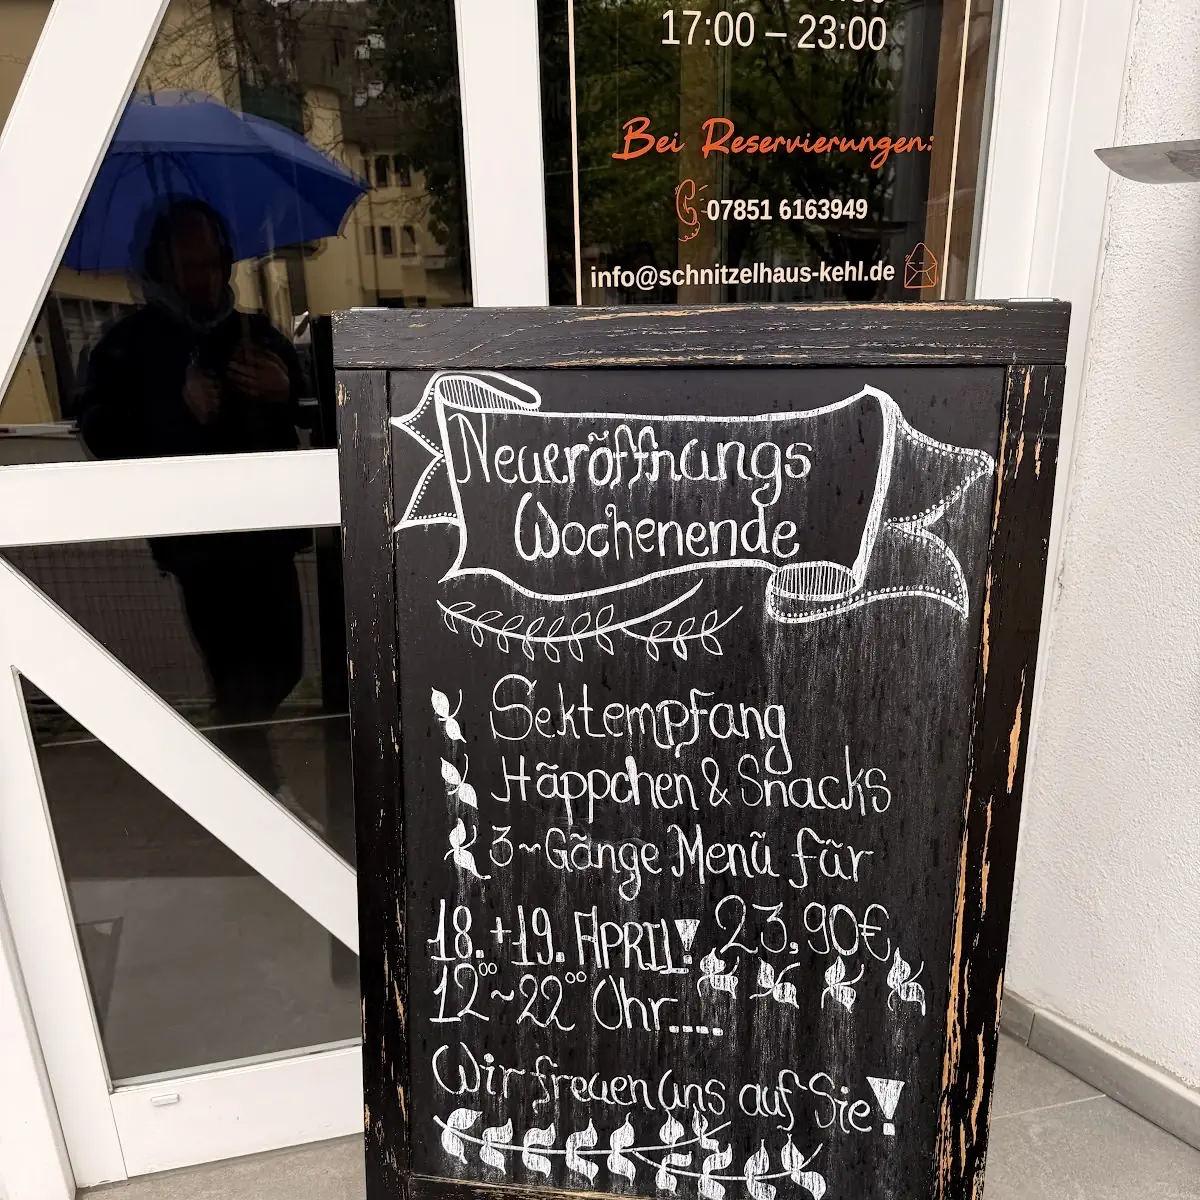 17:00 – 23:00
Bei Reservierungen:
07851 6163949
info@schnitzelhaus-kehl.de
Neueröffnungs
Wochenende
Sektempfang
Häppchen & Snacks
3~Gänge Menü für
18.+19. APRIL! 23,90€
12⁰⁰~22⁰⁰ Uhr....
Wir freuen uns auf Sie!